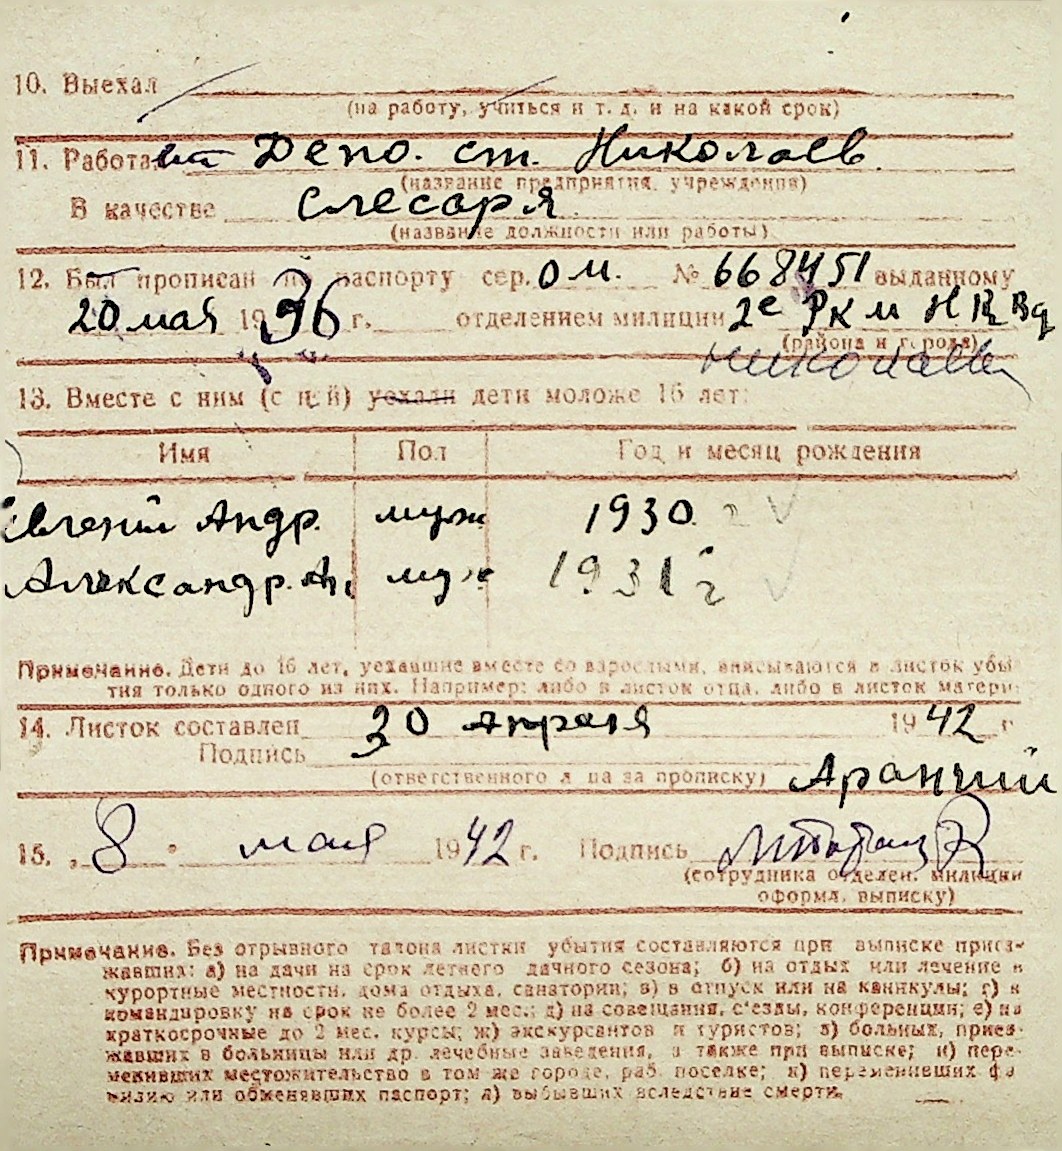 10. Выехал
(на работу, учиться и т. д. и на какой срок)
11. Работает Депо. ст. Николаев.
(название предприятия, учреждения)
В качестве слесаря.
(название должности или работы)
12. Был прописан по паспорту сер. ОМ. № 668451 выданному
20 мая 1936 г. отделением милиции 2е РКМ НКВД
(района и города)
Николаев
13. Вместе с ним (с ней) уехали дети моложе 16 лет:
Имя Пол Год и месяц рождения
Евгений Андр. муж 1930 г
Александр. Ан. муж 1931 г
Примечание. Дети до 16 лет, уехавшие вместе со взрослыми, вписываются в листок убы-
тия только одного из них. Например: либо в листок отца, либо в листок матери.
14. Листок составлен 30 апреля 1942 г
Подпись
(ответственного лица за прописку) Аранчий
15. „8" мая 1942 г. Подпись
(сотрудника отделен. милиции
оформл. выписку)
Примечание. Без отрывного талона листки убытия составляются при выписке приез-
жавших: а) на дачи на срок летнего дачного сезона; б) на отдых или лечение в
курортные местности, дома отдыха, санатории; в) в отпуск или на каникулы; г) в
командировку на срок не более 2 мес.; д) на совещания, с'езды, конференции; е) на
краткосрочные до 2 мес. курсы; ж) экскурсантов и туристов; з) больных, приез-
жавших в больницы или др. лечебные заведения, а также при выписке; и) пере-
менивших местожительство в том же городе, раб. поселке; к) переменивших фа-
милию или обменявших паспорт; л) выбывших вследствие смерти.